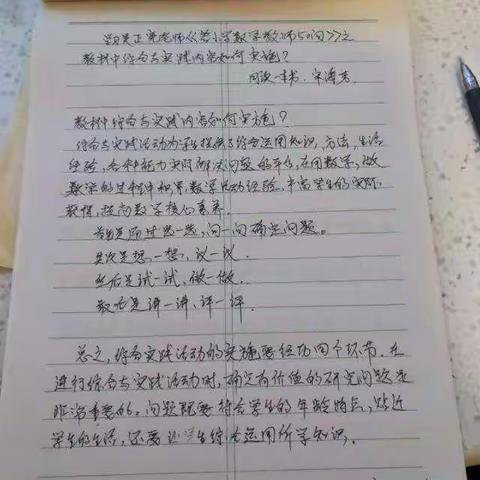 学习吴正宪老师《答小学数学教师50问》之
教材中综合与实践内容如何实施?
教材中综合与实践内容如何实施?
综合与实践活动为学生提供了综合运用知识,方法,生活
经验,各种能力实际解决问题的平台,在用数学,做
数学的过程中积累数学活动经验,丰富学生的实际
获得,提高数学核心素养。
首先是通过思一思,问一问确定问题。
其次是想一想,议一议.
然后是试一试,做一做.
最后是讲一讲,评一评.
总之,综合实践活动的实施要经历四个环节.在
进行综合与实践活动时,确定有价值的研究问题是
非常重要的。问题既要符合学生的年龄特点,贴近
学生的生活,还要让学生综合运用所学知识.